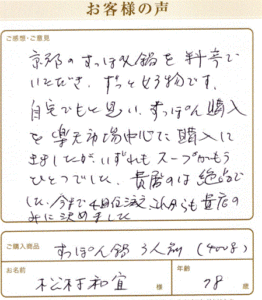 お客様の声
ご感想・ご意見
京都のすっぽん鍋を料亭で
いただき、ずっと好物です。
自宅でもと思い、すっぽん購入
を楽天市場中心に購入して
ましたが、いずれもスープがもう
ひとつでした。貴店のは絶品で
した。今まで4回位注文、これからも貴店の
みに決めました
ご購入商品
すっぽん鍋 3人前 (400g)
お名前
松村和宜 様
年齢
78 歳